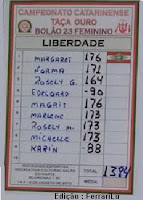 CAMPEONATO CATARINENSE
TAÇA OURO
BOLÃO 23 FEMININO
LIBERDADE
MARGARET 176
NORMA 171
ROSELY G. 164
EDELGARD -90
MAGRIT 176
MARLENE 173
ROSELY M. 173
MICHELLE 173
KARIN -88
TOTAL 1384
Edição : FerrariLu